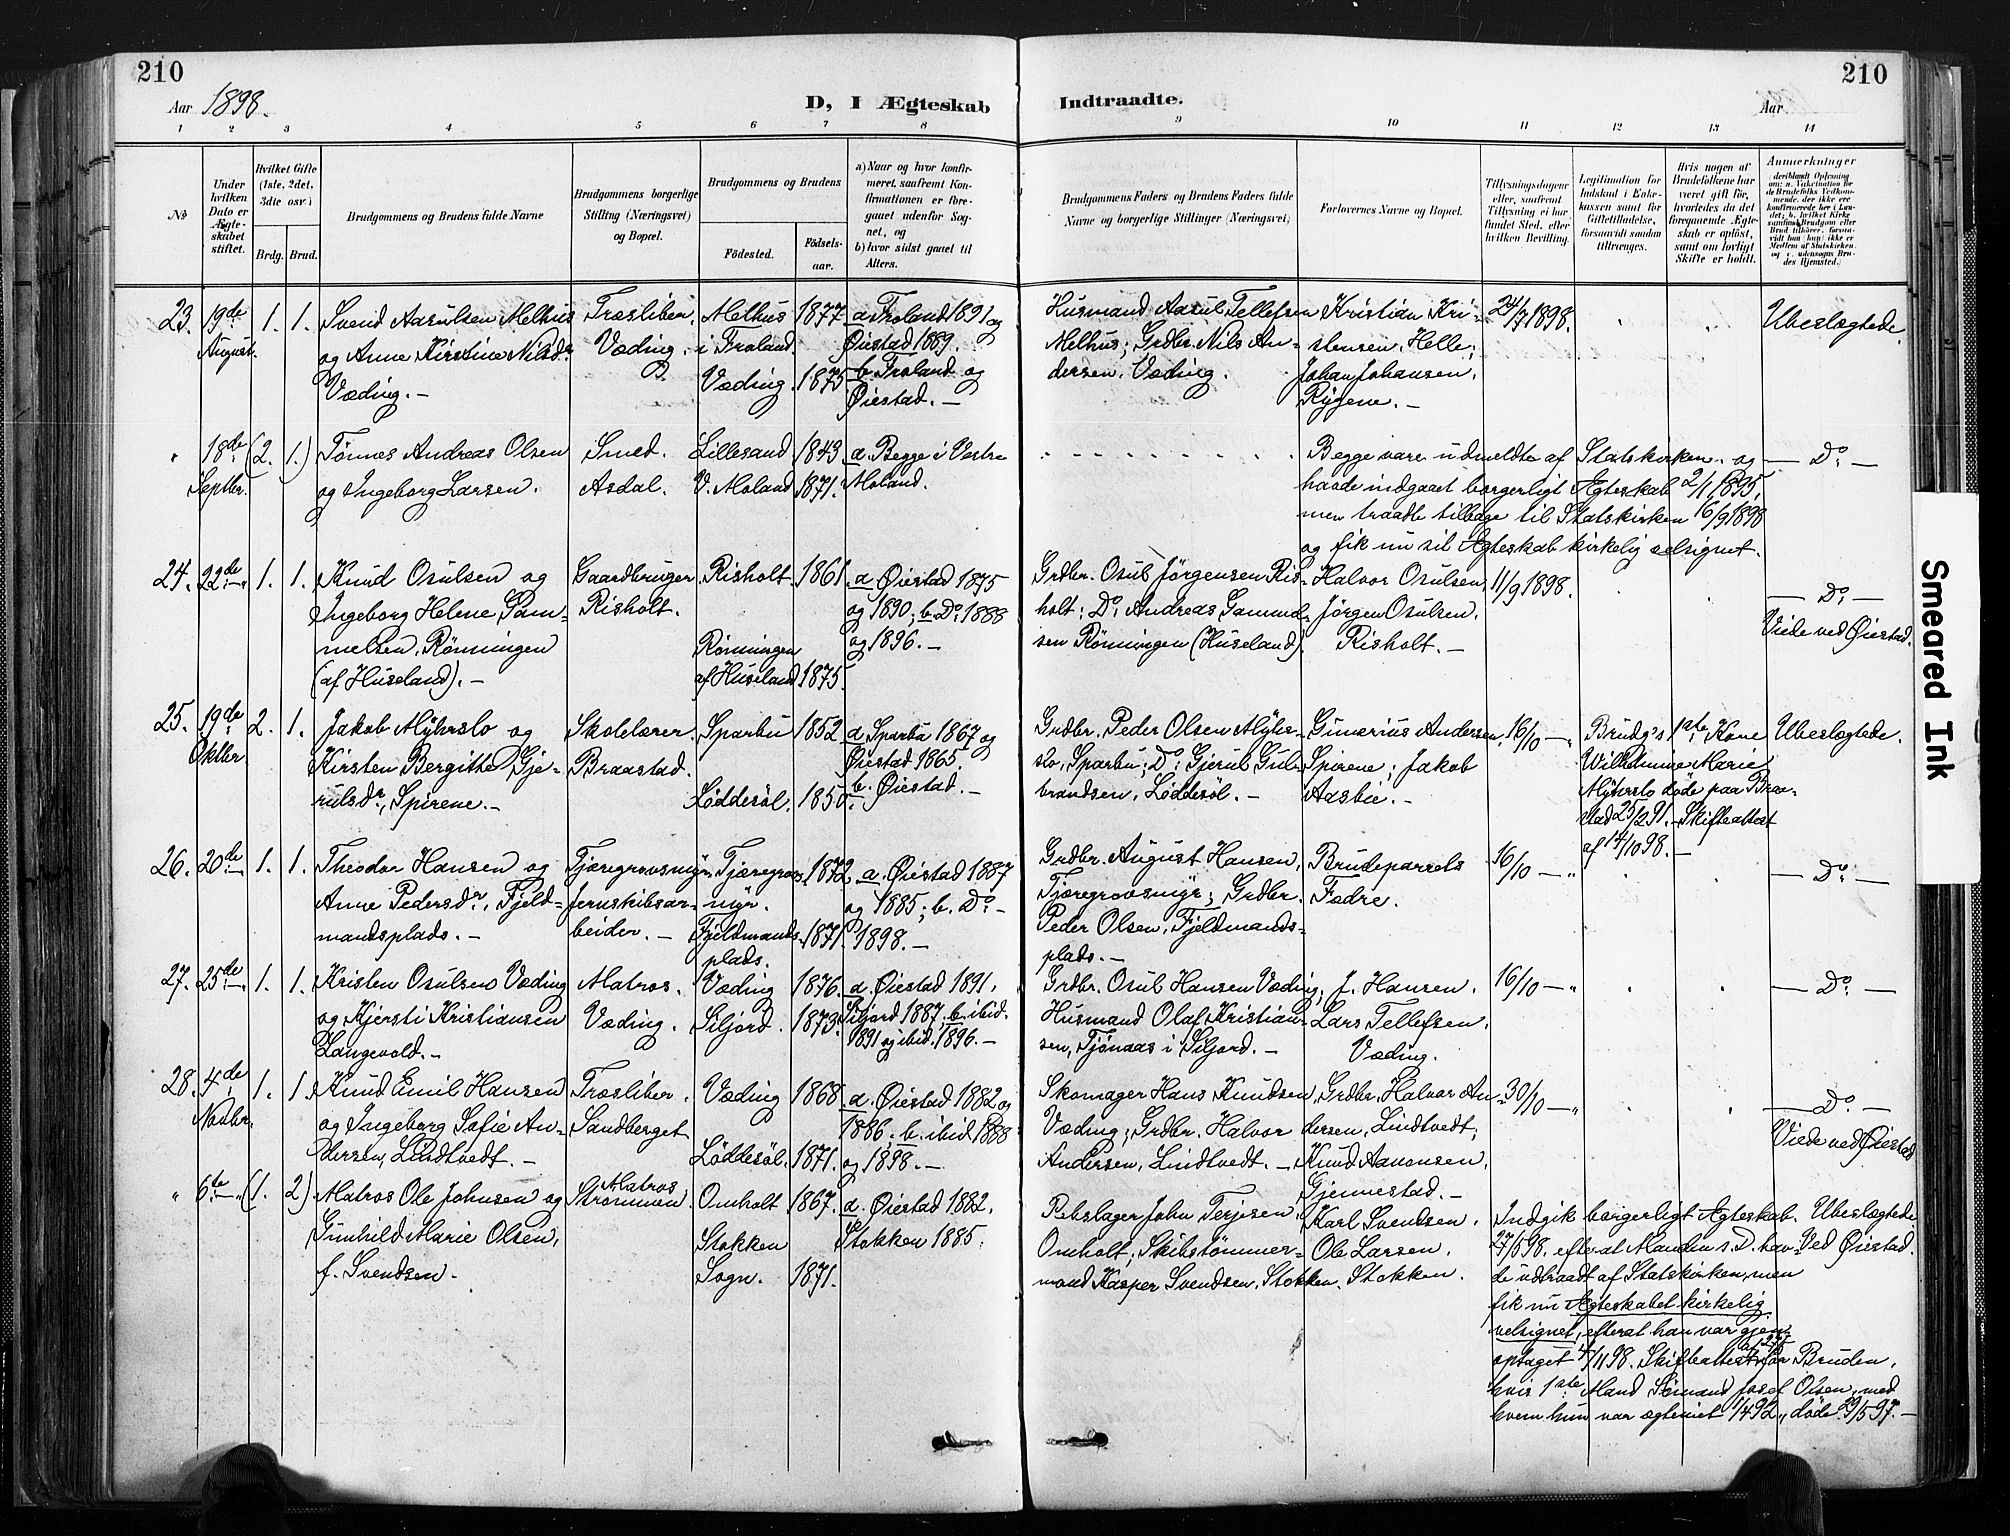 210
210
Aar 1898.
D, I Ægteskab Indtraadte.
Aar
1 2 3 4 5 6 7 8 9 10 11 12 13 14
No
Under hvilken Dato er Ægteskabet stiftet.
Hvilket Gifte (1ste, 2det, 3die osv.)
Brdg. Brud.
Brudgommens og Brudens fulde Navne
Brudgommens borgerlige Stilling (Næringsvei) og Bopæl.
Brudgommens og Brudens
Fødested.
Fødselsaar.
a) Naar og hvor konfirmeret, saafremt Konfirmationen er foregaaet udenfor Sognet, og
b) hvor sidst gaaet til Alters.
Brudgommens Faders og Brudens Faders fulde Navne og borgerlige Stillinger (Næringsvei)
Forlovernes Navne og Bopæl.
Tillysningsdagene eller, saafremt Tillysning ei har fundet Sted, efter hvilken Bevilling.
Legitimation for Indskud i Enkekassen samt for Giftetilladelse, forsaavidt saadan tiltrænges.
Hvis nogen af Brudefolkene har været gift før, hvorledes da det foregaaende Ægteskab er opløst, samt om lovligt Skifte er holdt.
Anmærkninger
23. 19de August. 1. 1.
Svend Aasulsen Melhus
og Anne Kirstine Nilsdr.
Væding. —
Træsliber,
Væding.
Melhus 1877
i Froland.
Væding. 1875
a. Froland 1891 og
Øiestad 1889.
b. Froland og
Øiestad. —
Husmand Aasul Tellefsen
Melhus; Grdbr. Nils An-
dersen, Væding.
Kristian Kri-
stensen, Helle;
Johan Johansen,
Rygene. —
24/7 1898.
Ubeslægtede.
" 18de Septbr. (2. 1.)
Tønnes Andreas Olsen
og Ingeborg Larsen.
Smed.
Asdal.
Lillesand 1843
V. Moland 1871.
a. Begge i Vestre
Moland.
Begge vare udmeldte af Statskirken og
havde indgaaet borgerligt Ægteskab 2/1 1895,
men traadte tilbage til Statskirken 16/9 1898
og fik nu sit Ægteskab kirkelig velsignet.
— Do. —
24. 22de —" 1. 1.
Knud Osulsen og
Ingeborg Helene Gam-
melsen, Rønningen
(af Huseland). —
Gaardbruger
Risholt.
Risholt. 1861.
Rønningen
af Huseland 1875.
a. Øiestad 1875
og 1890; b. Do. 1888
og 1896. —
Grdbr. Osul Jørgensen Ris-
holt; Do. Andreas Gammel-
sen Rønningen (Huseland).
Halvor Osulsen,
Jørgen Osulsen,
Risholt. —
11/9 1898.
— Do. —
Viede ved Øiestad.
25. 19de Oktbr. 2. 1.
Jakob Myhrslo og
Kirsten Bergitte Gje-
rulsdr., Spirene. —
Skolelærer
Braastad.
Sparbu 1852
Løddesøl. 1850.
a. Sparbu 1867 og
Øiestad 1865.
b. Øiestad. —
Grdbr. Peder Olsen Myhr-
slo, Sparbu; Do. Gjerul Gul-
brandsen, Løddesøl. —
Gunerius Andersen,
Spirene; Jakob
Aasbie. —
16/10 — "
Brudg's 1ste Kone
Wilhelmine Marie
Myhrslo døde paa Braa-
stad 25/2 91. Skifteattest
af 14/10 98. —
Ubeslægtede.
26. 20de —" 1. 1.
Theodor Hansen og
Anne Pedersdr., Fjeld-
mandsplads. —
Tjæregrovsmyr,
Jernskibsar-
beider. —
Tjæregrovs- 1872
myr.
Fjeldmands- 1871
plads.
a. Øiestad 1887
og 1885; b. Do. —
1898. —
Grdbr. August Hansen,
Tjæregrovsmyr; Grdbr.
Peder Olsen, Fjeldmands-
plads. —
Brudeparrets
Fædre.
16/10 — "
— Do. —
27. 25de —" 1. 1.
Kristen Osulsen Væding
og Kjersti Kristiansen
Langevold. —
Matros.
Væding.
Væding 1876.
Siljord. 1873.
a. Øiestad 1891,
Siljord 1887. b. ibid.
1891 og ibid. 1896. —
Grdbr. Osul Hansen Væding;
Husmand Olaf Kristian-
sen, Tjønaas i Siljord. —
J. Hansen.
Lars Tellefsen,
Væding.
16/10 — "
— Do. —
28. 4de Novbr. 1. 1.
Knud Emil Hansen
og Ingeborg Sofie An-
dersen, Lindtvedt. —
Træsliber.
Sandberget
Væding 1868.
Løddesøl. 1871.
a. Øiestad 1882 og
1886; b. ibid 1888
og 1898. —
Skomager Hans Knudsen
Væding; Grdbr. Halvor
Andersen, Lindtvedt. —
Grdbr. Halvor An-
dersen, Lindtvedt;
Knud Aanonsen,
Gjennestad. —
30/10 — "
— Do. —
Viede ved Øiestad
" 6te —" (1. 2)
Matros Ole Johnson og
Gunhild Marie Olsen,
f. Svendsen.
Matros
Strømmen.
Omholt 1867.
Stokken
Sogn. 1871.
a. Øiestad 1882.
Stokken 1885.
Rebslager John Terjesen,
Omholt, Skibstømmer-
mand Kasper Svendsen, Stokken.
Karl Svendsen,
Ole Larsen,
Stokken.
Indgik borgerligt Ægteskab
27/5 98. efter at Manden s. D. hav-
de udtraadt af Statskirken, men
fik nu Ægteskabet kirkelig
velsignet, efterat han var gjen-
optaget 4/11 98. Skifteattest for Bruden,
hvis 1ste Mand Sømand Josef Olsen, med
hvem hun var ægteviet 1/4 92, døde 29/5 97. —
Ubeslægtede
Ved Øiestad.
Smeared Ink